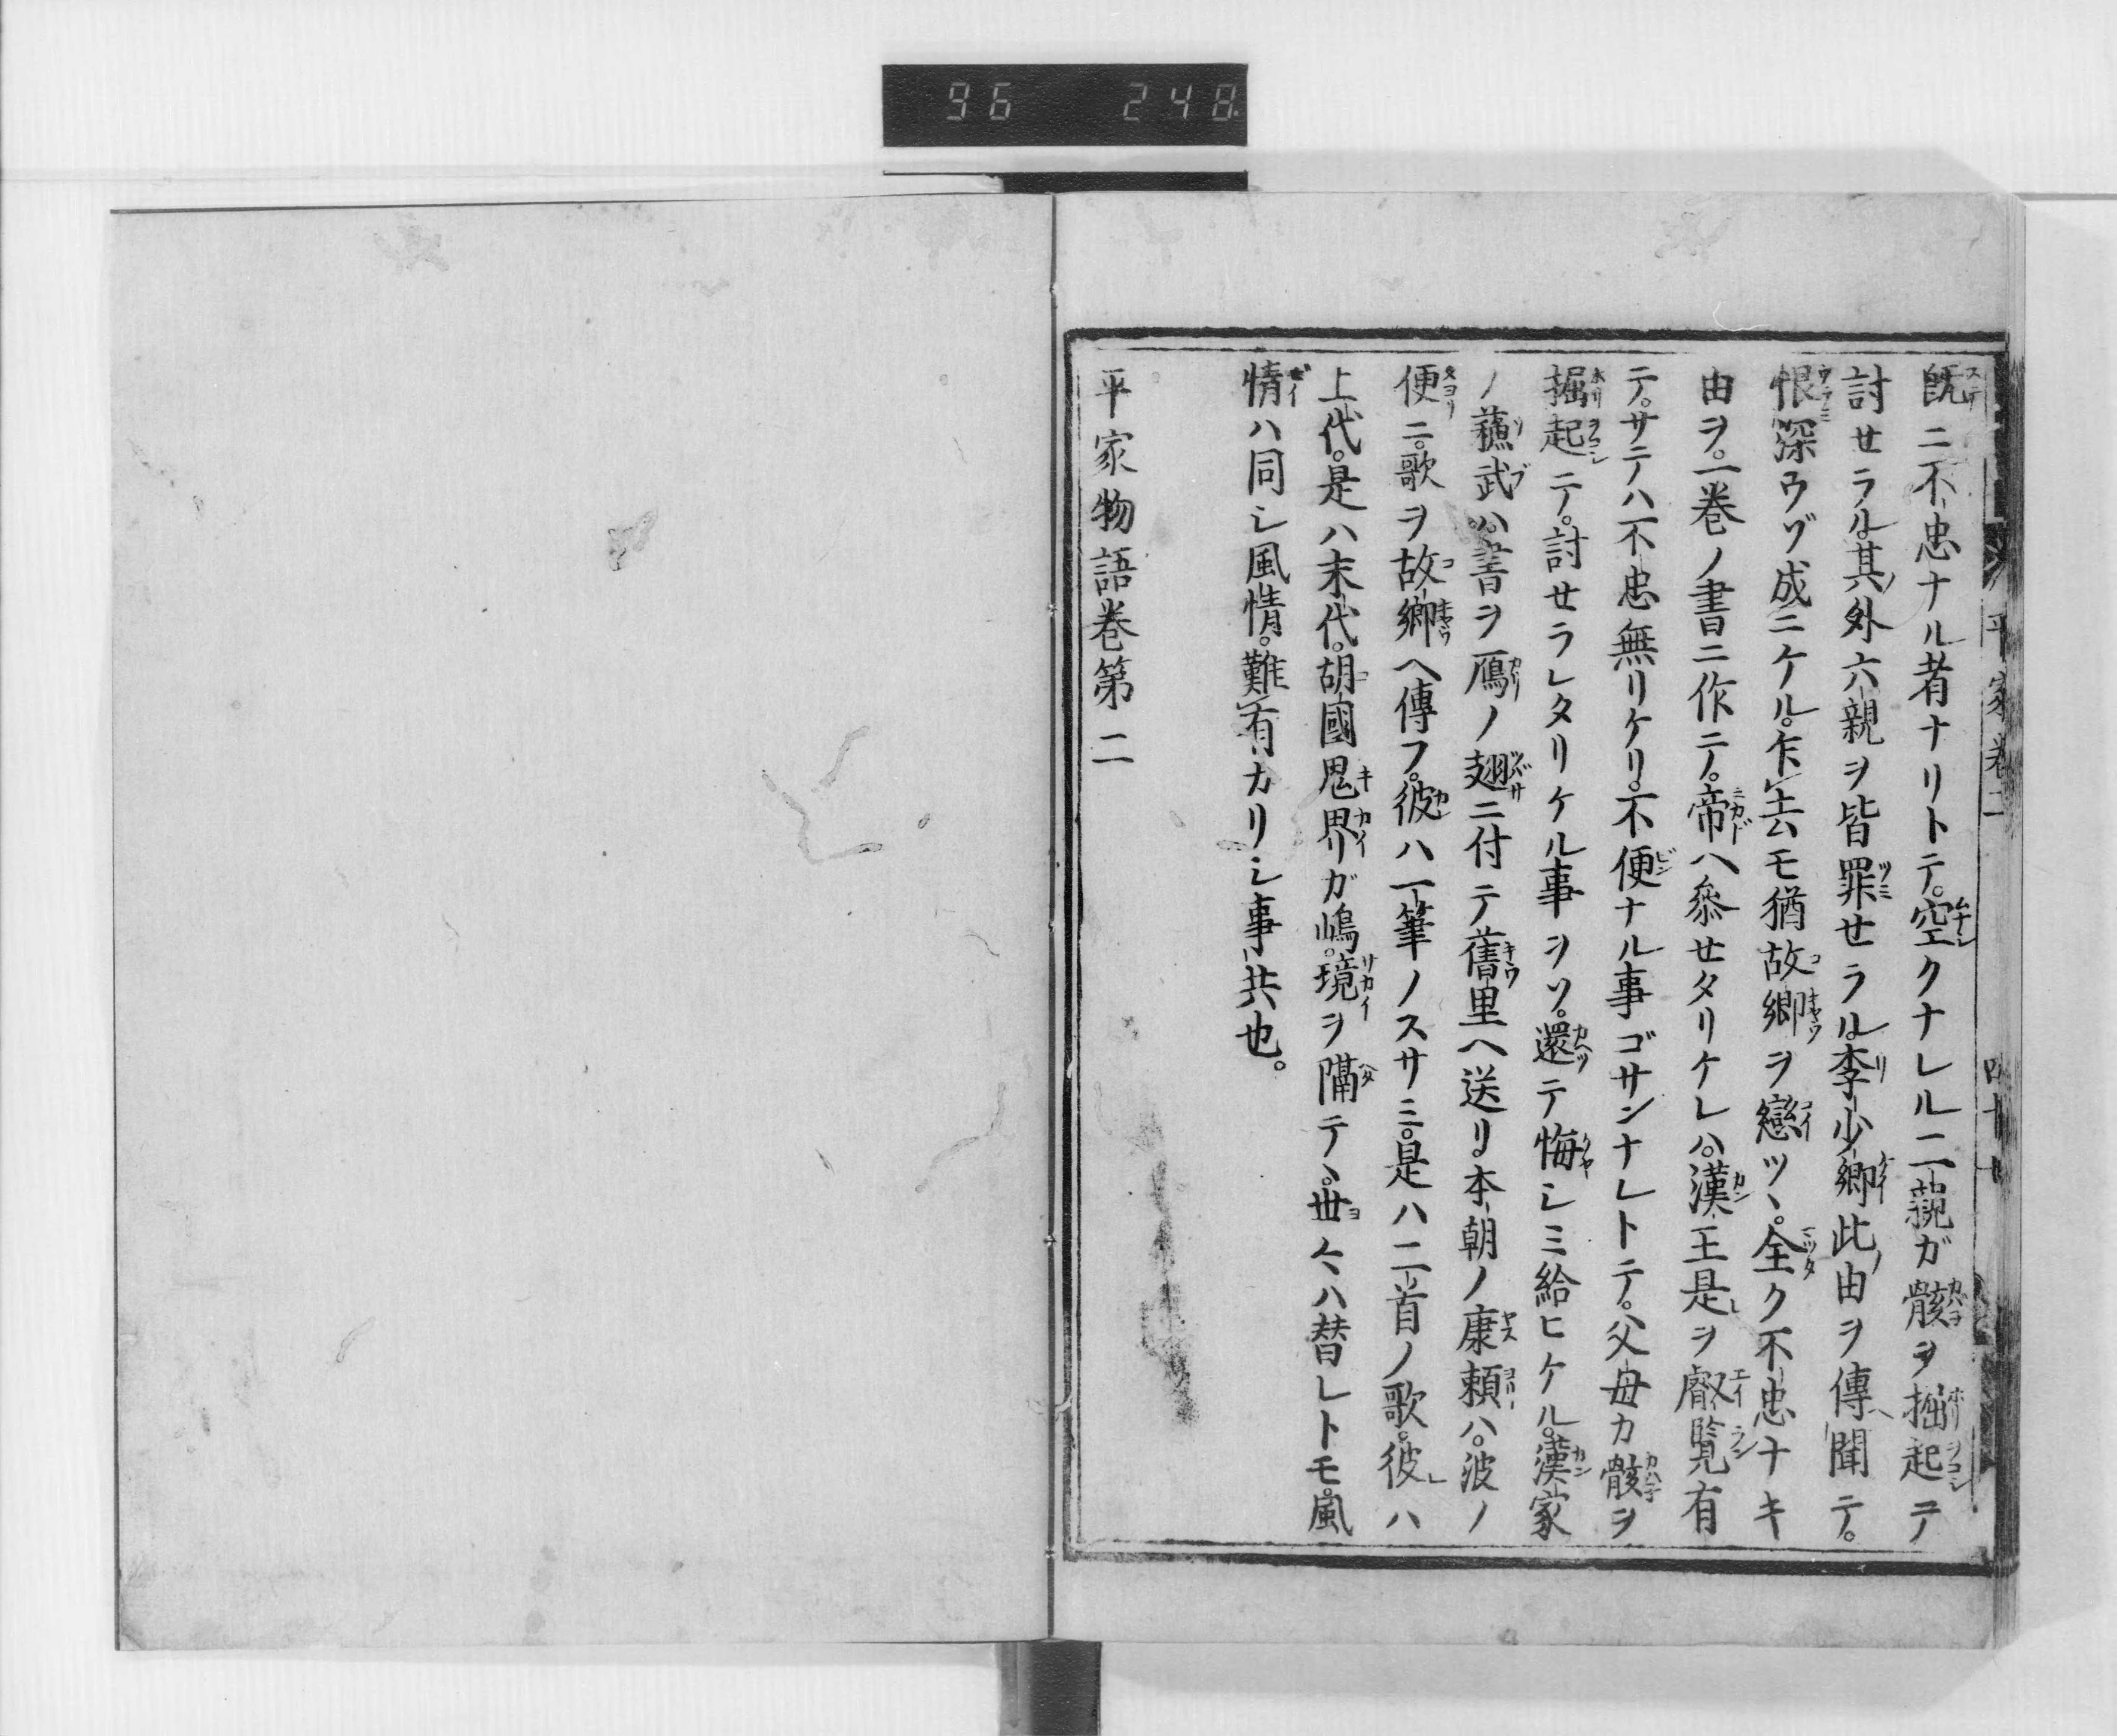 96 248
既ニ不忠ナル者ナリトテ。空クナレル二親ガ骸ヲ掘起テ
討セラル其外六親ヲ皆罪セラル李少卿此由ヲ傳聞テ。
恨深ウゾ成ニケル。乍去モ猶故郷ヲ戀ツヽ。全ク不忠ナキ
由ヲ。一巻ノ書ニ作テ。帝ヘ參セタリケレハ。漢王是ヲ叡覧有
テ。サテハ不忠無リケリ。不便ナル事ゴサンナレトテ。父母カ骸ヲ
掘起テ。討セラレタリケル事ヲソ。還テ悔シミ給ヒケル。漢家
ノ蘓武ハ。書ヲ鴈ノ翅ニ付テ舊里ヘ送リ。本朝ノ康頼ハ。波ノ
便ニ。歌ヲ故郷ヘ傳フ。彼ハ一筆ノスサミ。是ハ二首ノ歌。彼ハ
上代。是ハ末代。胡國鬼界リガ嶋。境ヲ隔テヽ。世々ハ替レトモ。風
情ハ同シ風情。難有カリシ事共也。
平家物語巻第二
平家巻二